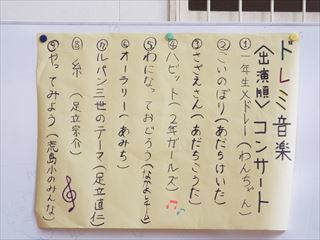 ドレミ音楽コンサート
〈出演順〉
①一年生×ドレー(わんちゃん)
②こいのぼり(あだちけいた)
③さざえさん(あだちこうた)
④ハピット(2年ガールズ)
⑤わになっておどろう(なかよしチーム)
⑥オーラリー(あみち)
⑦ルパン三世のテーマ(足立直仁)
⑧糸(足立宗介)
⑨やってみよう(荒島小のみんな)